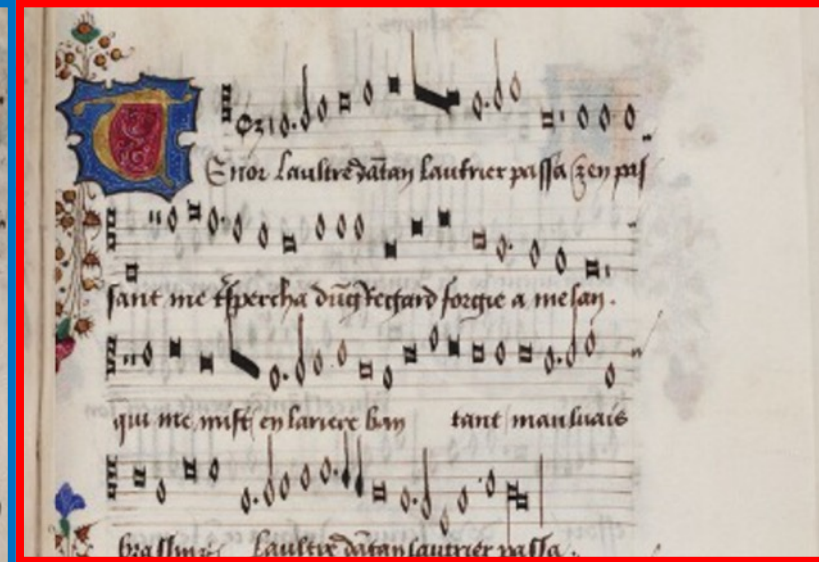 Tenor Laultre dãtan lautrier passa Et en pas
sant me trẽspercha dũg regard forgie a melan.
qui me mist en lariere ban tant mauluais
brassin Laultre dãtan lautrier passa.